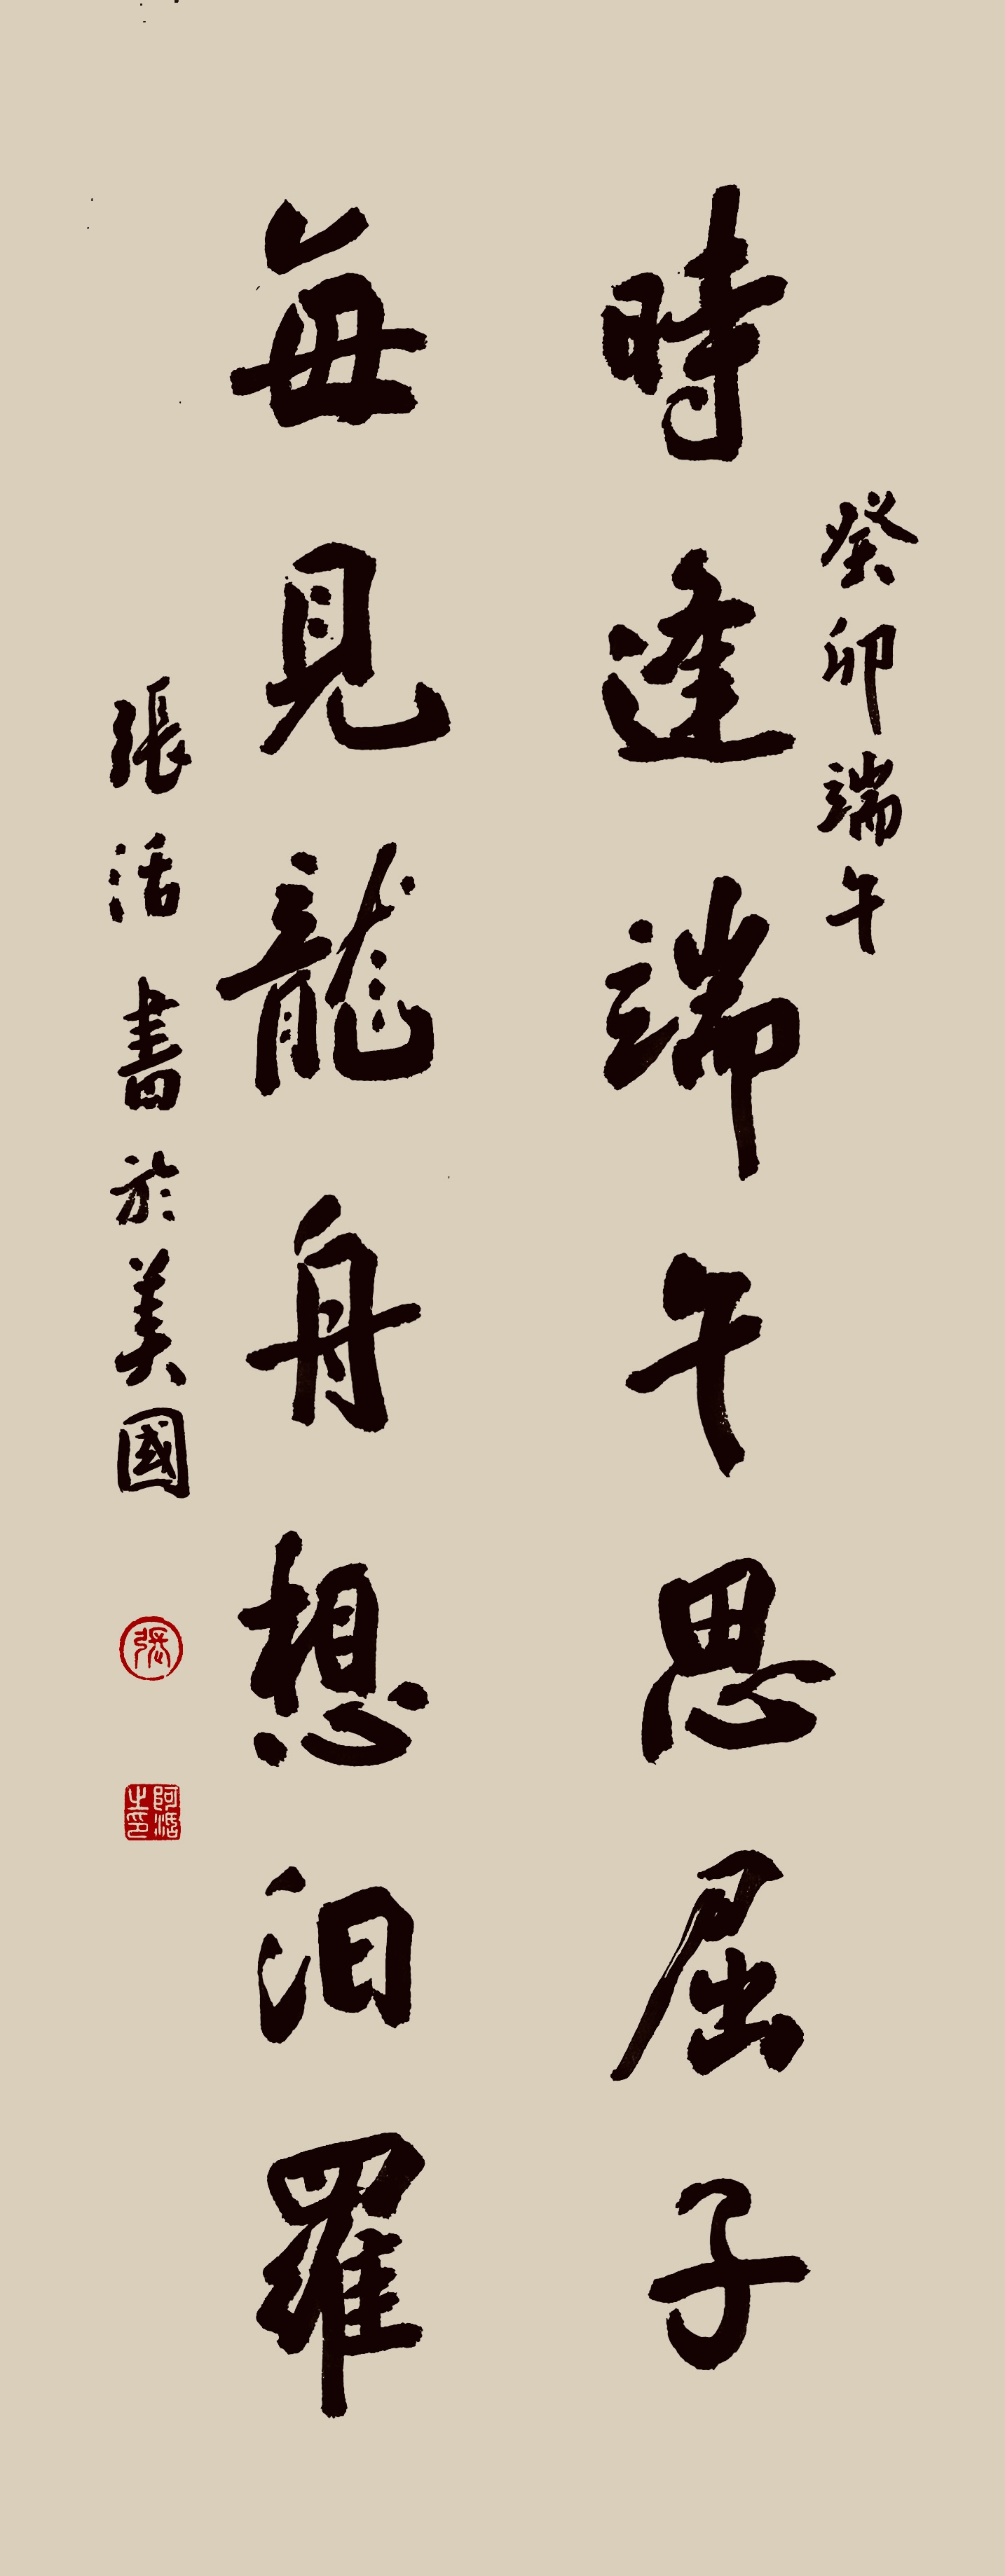 癸卯端午
時逢端午思屈子
每見龍舟想汨羅
張活書於美國
張
阿活之印